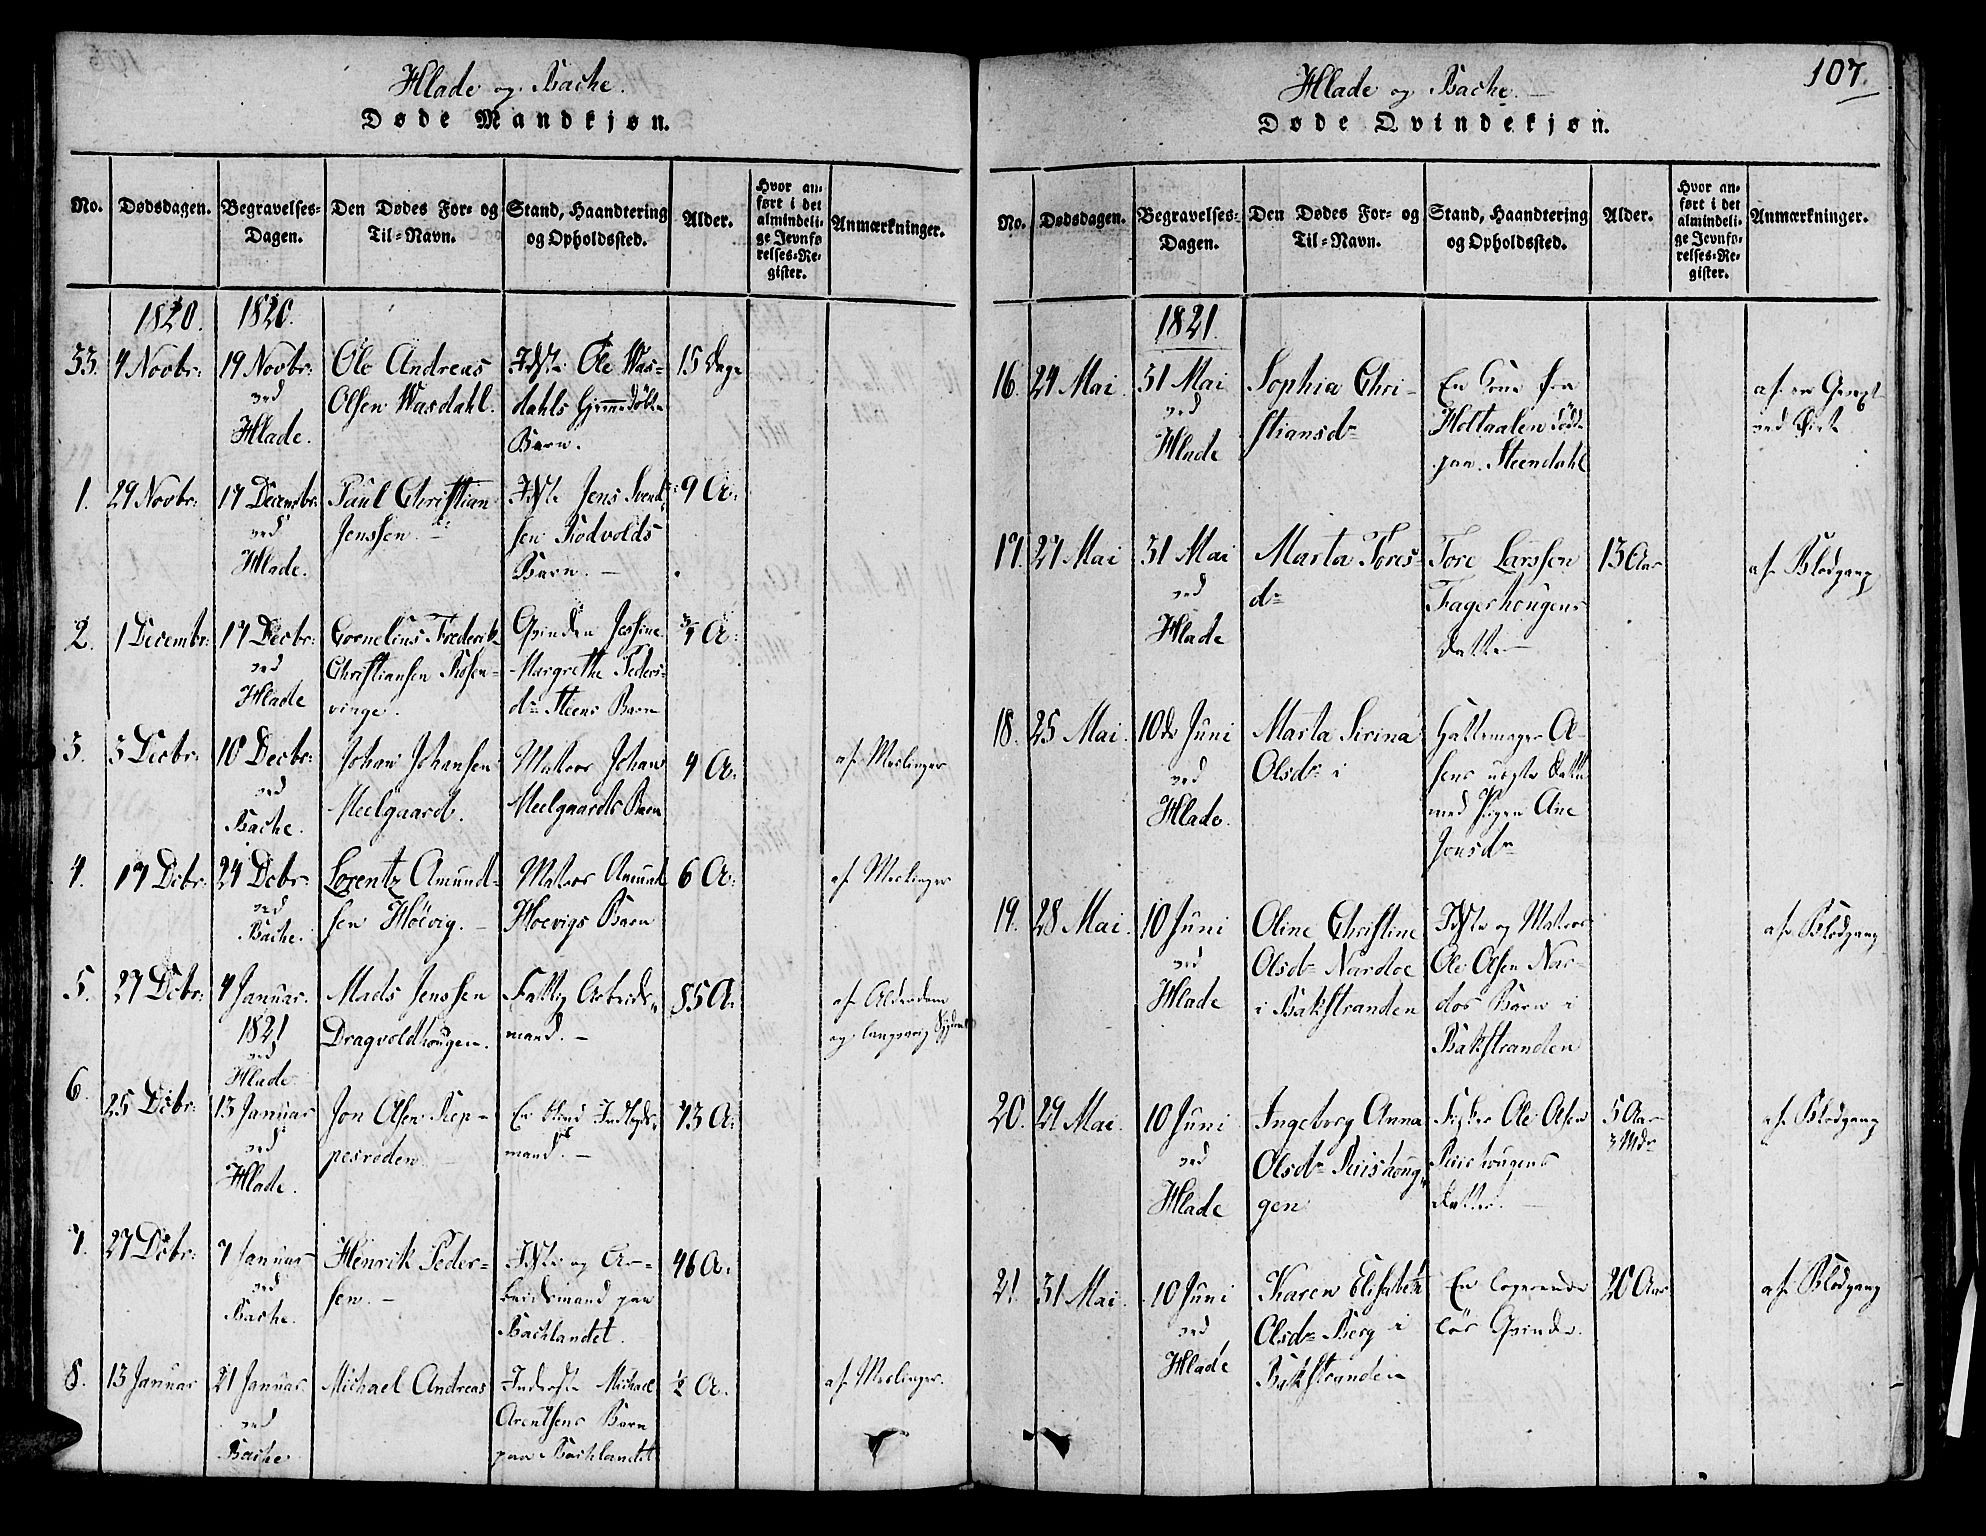 Hlade og Bache.
Døde Mandkjøn.
No.
Dødsdagen.
Begravelses-
Dagen.
Den Dødes For- og
Til-Navn.
Stand, Haandtering
og Opholdssted.
Alder.
Hvor an-
ført i det
almindeli-
ge Jevnfø
relses-Re-
gister.
Anmærkninger.
1820.
1820.
33.
4 Novbr:
19 Novbr:
ved
Hlade.
Ole Andreas
Olsen Wasdahl.
Idste Ole Was-
dahls
Barn.
15 Dage
1.
29 Novbr:
17 Decembr:
ved
Hlade.
Paul Christian
Jenssen. -
Idste Jens Svend-
sen Rødvolds
Barn. -
9 A:
2.
1 Decembr:
17 Decbr:
ved
Hlade
Cornelius Frederik
Christiansen Rosen-
vinge.
Qvinden Jessine
Margrethe Peders-
dr Steens Barn
3/4 A:
3.
3 Decbr:
10 Decbr:
ved
Bache.
Johan Johansen
Meelgaard.
Matros Johan
Meelgaards Barn
4 A:
af Meslinger
4.
17 Dcbr:
24 Dcbr:
ved
Bache.
Lorentz Amund-
sen Høevig. -
Matros Amund
Hoevigs Barn
6 A:
af Meslinger
5.
27 Dcbr:
4 Januar.
1821
ved
Hlade
Mads Jenssen
Dragvoldhougen.
Fattig Arbeids-
mand. -
85 A:
af Alderdom
og langvarig Sygdom
6.
25 Dcbr:
13 Januar
ved
Hlade.
Jon Olsen Rep-
pesveden. -
En blind Indlægds-
mand. -
73 A:
7.
27 Dcbr:
7 Januar
ved
Bache.
Henrik Peder-
sen. -
Idste og Ar-
beidsmand paa
Bachlandet.
46 A:
8.
13 Januar
21 Januar
ved
Bache
Michael Andreas
Inderste Michael
Arentsens Barn
paa Bachlandet
1/2 A.
af Meslinger.
107.
Hlade og Bache. -
Døde Qvindekjøn.
No.
Dødsdagen.
Begravelses-
Dagen.
Den Dødes For- og
Til-Navn.
Stand, Haandtering
og Opholdssted.
Alder.
Hvor an-
ført i det
almindeli-
ge Jevnfø-
relses-Re-
gister.
Anmærkninger.
1821.
16.
24 Mai
31 Mai
ved
Hlade
Sophia Chri-
stiansdr
En Kone fra
Holtaalen død
paa Steendahl
af en
ved
17.
27 Mai
31 Mai
ved
Hlade
Marta Tores-
dr
Tore Larssen
Fagerhougens
Datter
13 Aar
af Blodgang
18.
25 Mai.
10de Juni
ved
Hlade.
Marta Sirina
Olsdr i
Hattemager O-
sens uægte Datter
med Pigen Ane
Jonsdr
19.
28 Mai.
10 Juni
ved
Hlade
Oline Christine
Olsdr Nardoe
i Bakstranden
Idste og Matros
Ole Olsen Nar-
does Barn i
Bakstranden
af Blodgang
20.
29 Mai.
10 Juni
ved
Hlade
Ingeborg Anna
Olsdr Riishoug-
gen
Fisker Ole Olsen
Riishougens
Datter. -
5 Aar
3 Mdr
af Blodgang
21.
31 Mai.
10 Juni
ved
Hlade
Karen Elisabeth
Olsdr Berg i
Bakstranden
En logerende
løs Qvinde.
20 Aar
af Blodgang